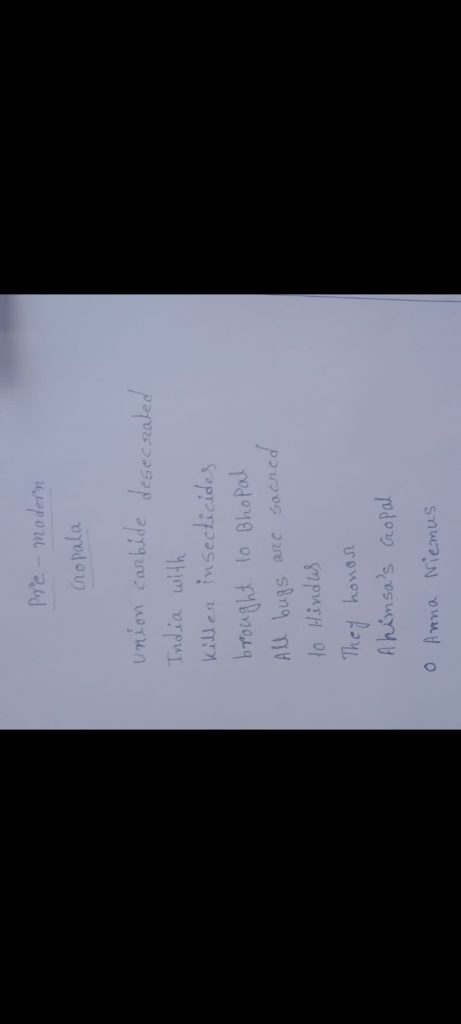 Pre-modern
Gopala
Union carbide desecrated
India with
killer insecticides
brought to Bhopal
All bugs are sacred
to Hindus
They honor
Ahimsa's Gopal
o Anna Niemus